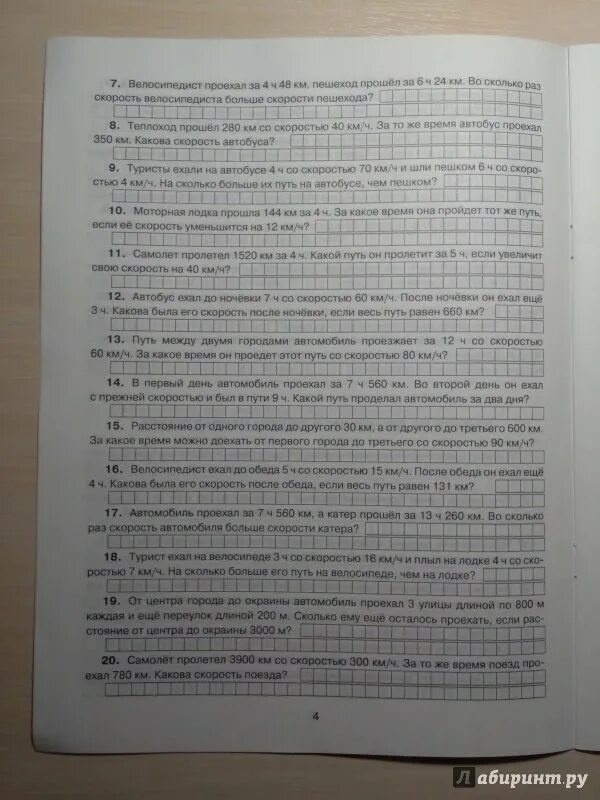 7. Велосипедист проехал за 4 ч 48 км, пешеход прошёл за 6 ч 24 км. Во сколько раз
скорость велосипедиста больше скорости пешехода?
8. Теплоход прошёл 280 км со скоростью 40 км/ч. За то же время автобус проехал
350 км. Какова скорость автобуса?
9. Туристы ехали на автобусе 4 ч со скоростью 70 км/ч и шли пешком 6 ч со скоро-
стью 4 км/ч. На сколько больше их путь на автобусе, чем пешком?
10. Моторная лодка прошла 144 км за 4 ч. За какое время она пройдет тот же путь,
если её скорость уменьшится на 12 км/ч?
11. Самолет пролетел 1520 км за 4 ч. Какой путь он пролетит за 5 ч, если увеличит
свою скорость на 40 км/ч?
12. Автобус ехал до ночёвки 7 ч со скоростью 60 км/ч. После ночёвки он ехал ещё
3 ч. Какова была его скорость после ночёвки, если весь путь равен 660 км?
13. Путь между двумя городами автомобиль проезжает за 12 ч со скоростью
60 км/ч. За какое время он проедет этот путь со скоростью 80 км/ч?
14. В первый день автомобиль проехал за 7 ч 560 км. Во второй день он ехал
с прежней скоростью и был в пути 9 ч. Какой путь проделал автомобиль за два дня?
15. Расстояние от одного города до другого 30 км, а от другого до третьего 600 км.
За какое время можно доехать от первого города до третьего со скоростью 90 км/ч?
16. Велосипедист ехал до обеда 5 ч со скоростью 15 км/ч. После обеда он ехал ещё
4 ч. Какова была его скорость после обеда, если весь путь равен 131 км?
17. Автомобиль проехал за 7 ч 560 км, а катер прошёл за 13 ч 260 км. Во сколько
раз скорость автомобиля больше скорости катера?
18. Турист ехал на велосипеде 3 ч со скоростью 16 км/ч и плыл на лодке 4 ч со ско-
ростью 7 км/ч. На сколько больше его путь на велосипеде, чем на лодке?
19. От центра города до окраины автомобиль проехал 3 улицы длиной по 800 м
каждая и ещё переулок длиной 200 м. Сколько ему ещё осталось проехать, если рас-
стояние от центра до окраины 3000 м?
20. Самолёт пролетел 3900 км со скоростью 300 км/ч. За то же время поезд про-
ехал 780 км. Какова скорость поезда?
4
Лабиринт.ру